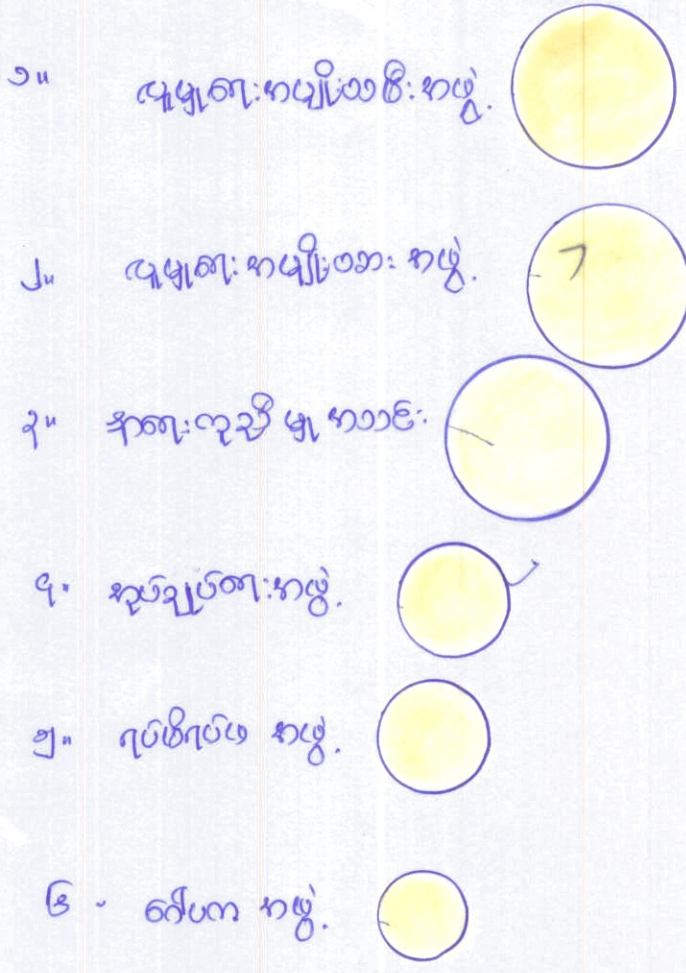 ၁။ လူမှုရေးအမျိုးသမီးအဖွဲ့.
၂။ လူမှုရေး အမျိုးသား အဖွဲ့.
၃။ နာရေးကူညီ မှု အသင်း.
၄။ အုပ်ချုပ်ရေးအဖွဲ့.
၅။ ရပ်မိရပ်ဖ အဖွဲ့.
၆ - ဂေါပက အဖွဲ့.